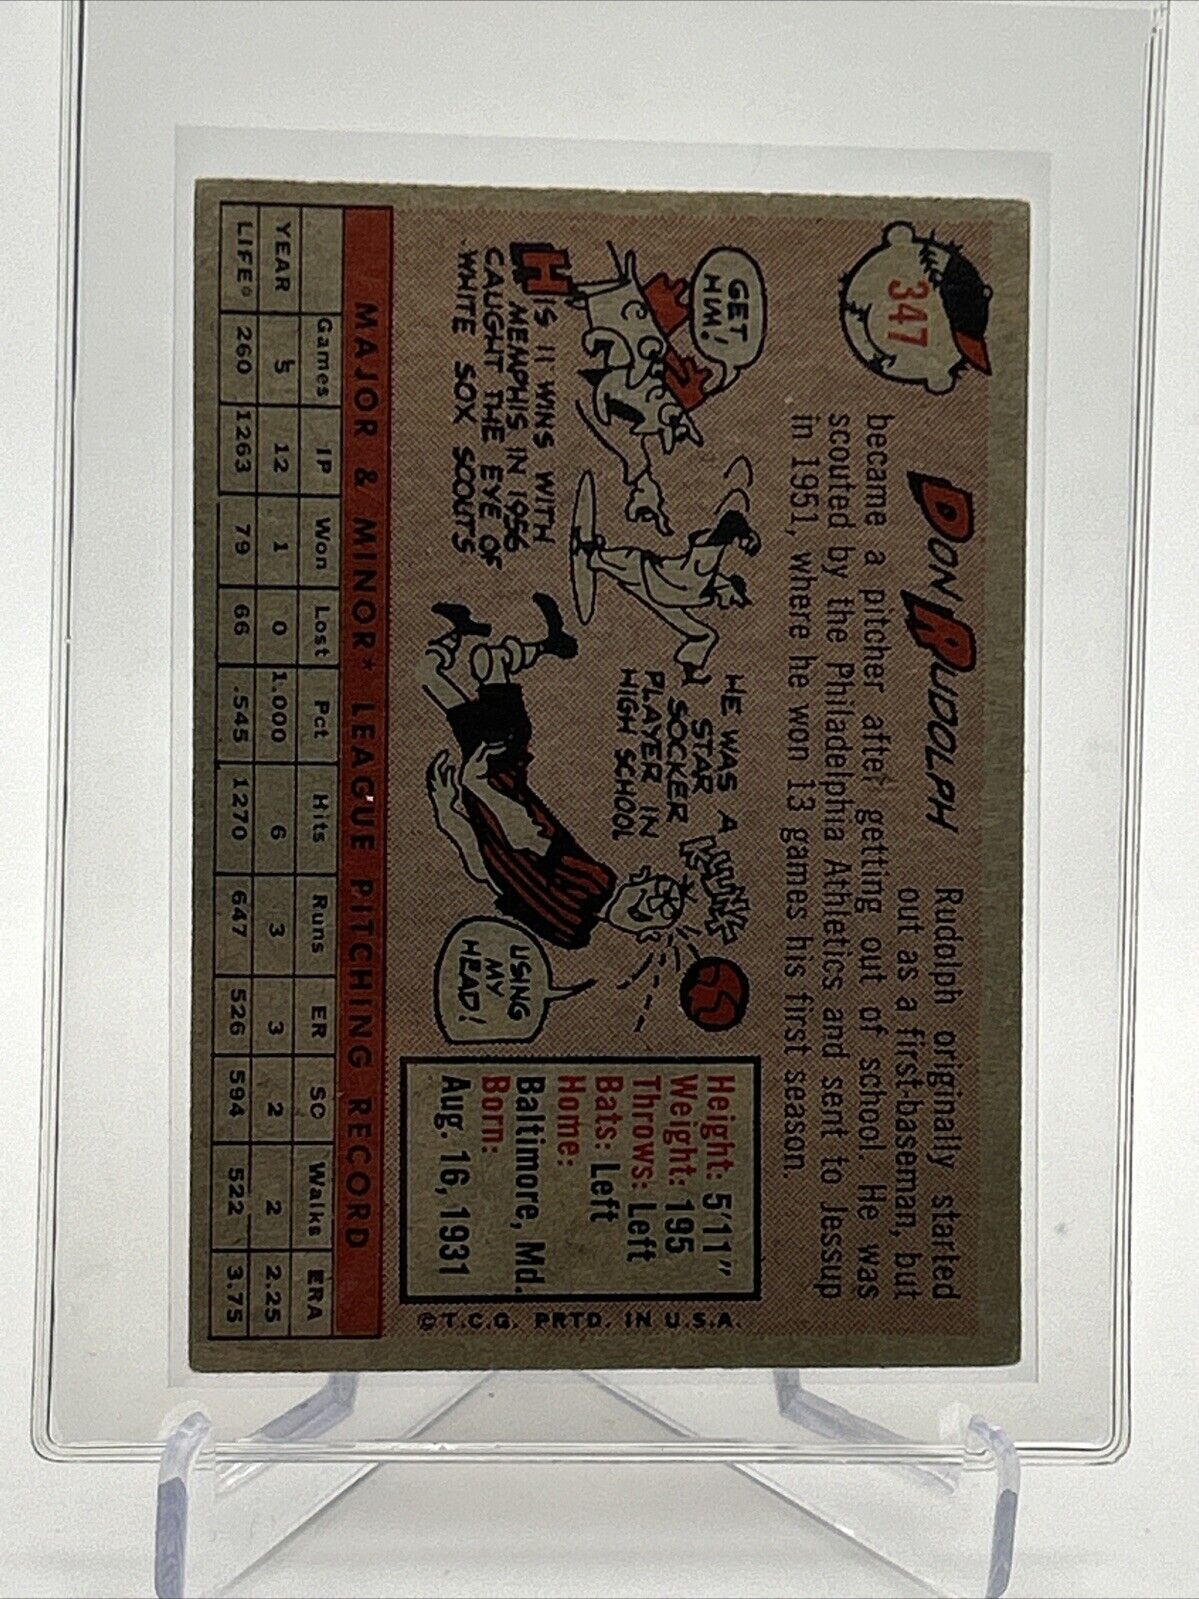 347
DON RUDOLPH
Rudolph originally started
out as a first-baseman, but
became a pitcher after getting out of school. He was
scouted by the Philadelphia Athletics and sent to Jessup
in 1951, where he won 13 games his first season.
GET
HIM!
HIS 11 WINS WITH
MEMPHIS IN 1956
CAUGHT THE EYE OF
WHITE SOX SCOUTS
HE WAS A
STAR
SOCKER
PLAYER IN
HIGH SCHOOL
USING
MY
HEAD!
Height: 5'11"
Weight: 195
Throws: Left
Bats: Left
Home:
Baltimore, Md.
Born:
Aug. 16, 1931
© T.C.G. PRTD. IN U.S.A.
MAJOR & MINOR* LEAGUE PITCHING RECORD
Games IP Won Lost Pct Hits Runs ER SO Walks ERA
YEAR 5 12 1 0 1.000 6 3 3 2 2 2.25
LIFE* 260 1263 79 66 .545 1270 647 526 594 522 3.75